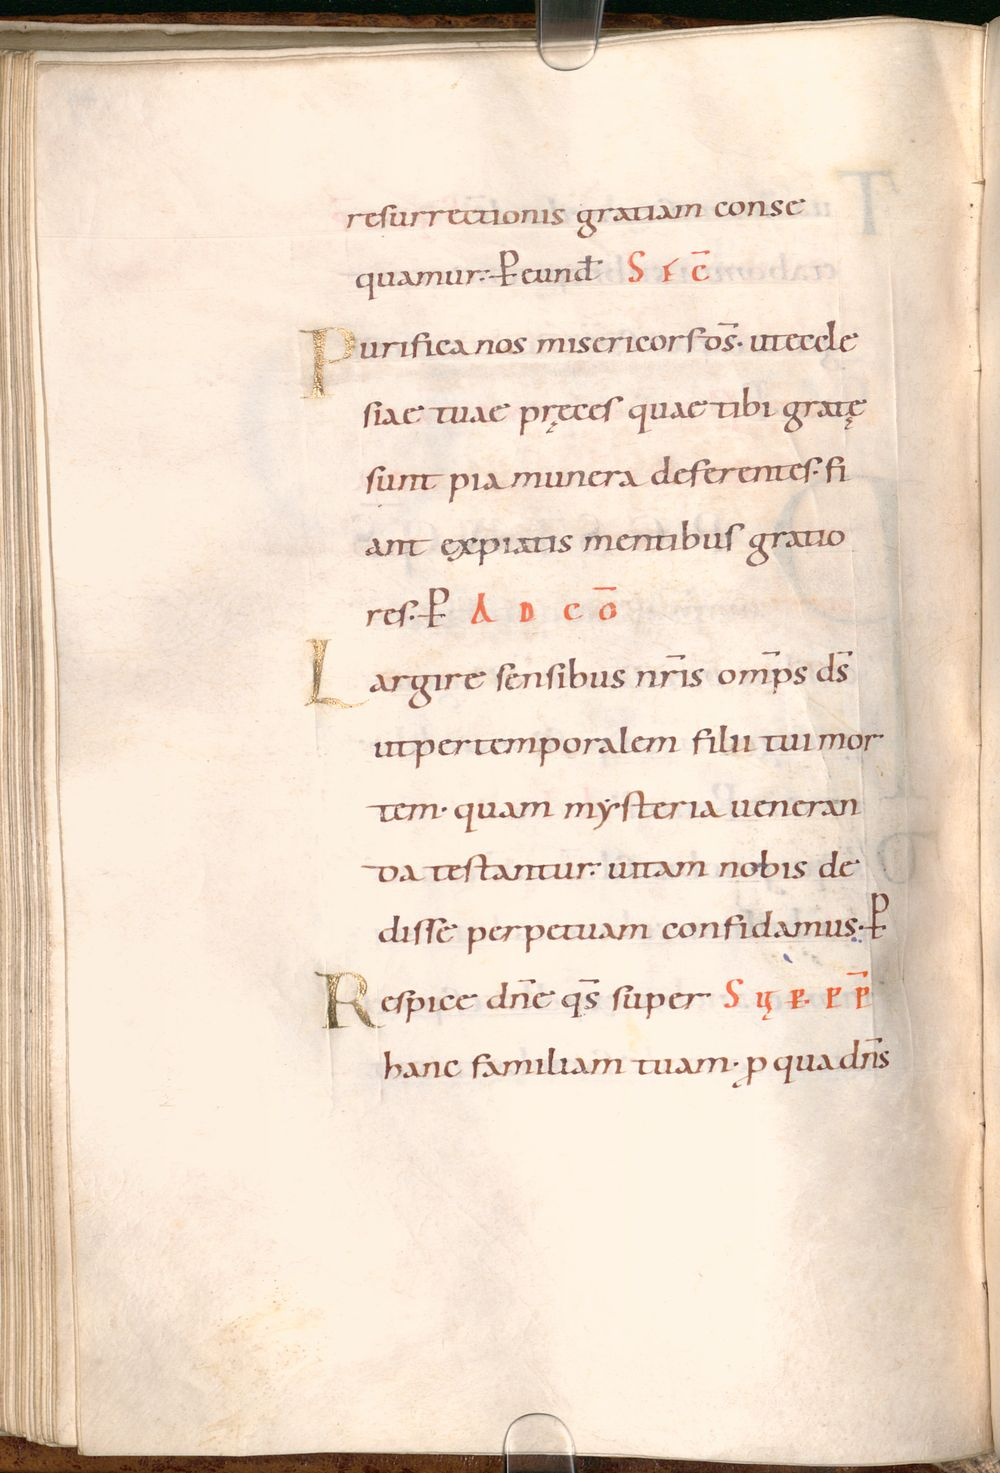 resurrectionis gratiam conse
quamur· P̵ eund̄ S E C̄
Purifica nos misericors ōs· ut eccle
siae tuae pręces quae tibi gratę
sunt pia munera deferentes· fi
ant expiatis mentibus gratio
res· P̵ A D C Ō
Largire sensibus nr̄is om̄ps ds̄
ut per temporalem filii tui mor
tem· quam mysteria ueneran
da testantur· uitam nobis de
disse perpetuam confidamus· P̵
Respice dn̄e qs̄ super
hanc familiam tuam· ꝓ qua dn̄s